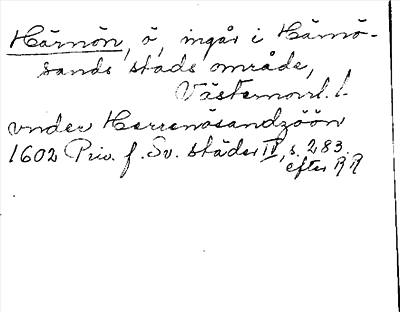 Härnön, ö, ingår i Härnö-
sands stads område,
Västernorrl. l.
vnder Herrenösandzöön
1602 Priv. f. Sv. städer IV, s. 283.
efter RR